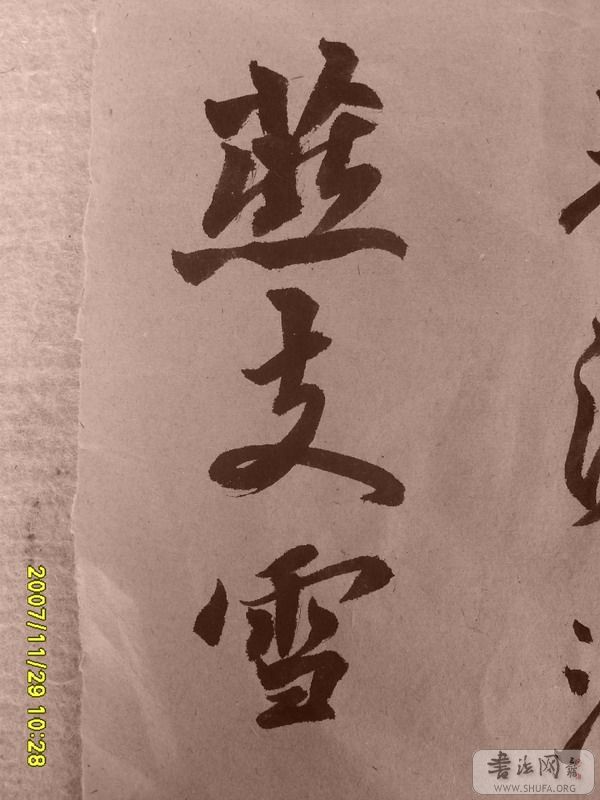 燕支雪
2007/11/29 10:28
書法网
WWW.SHUFA.ORG